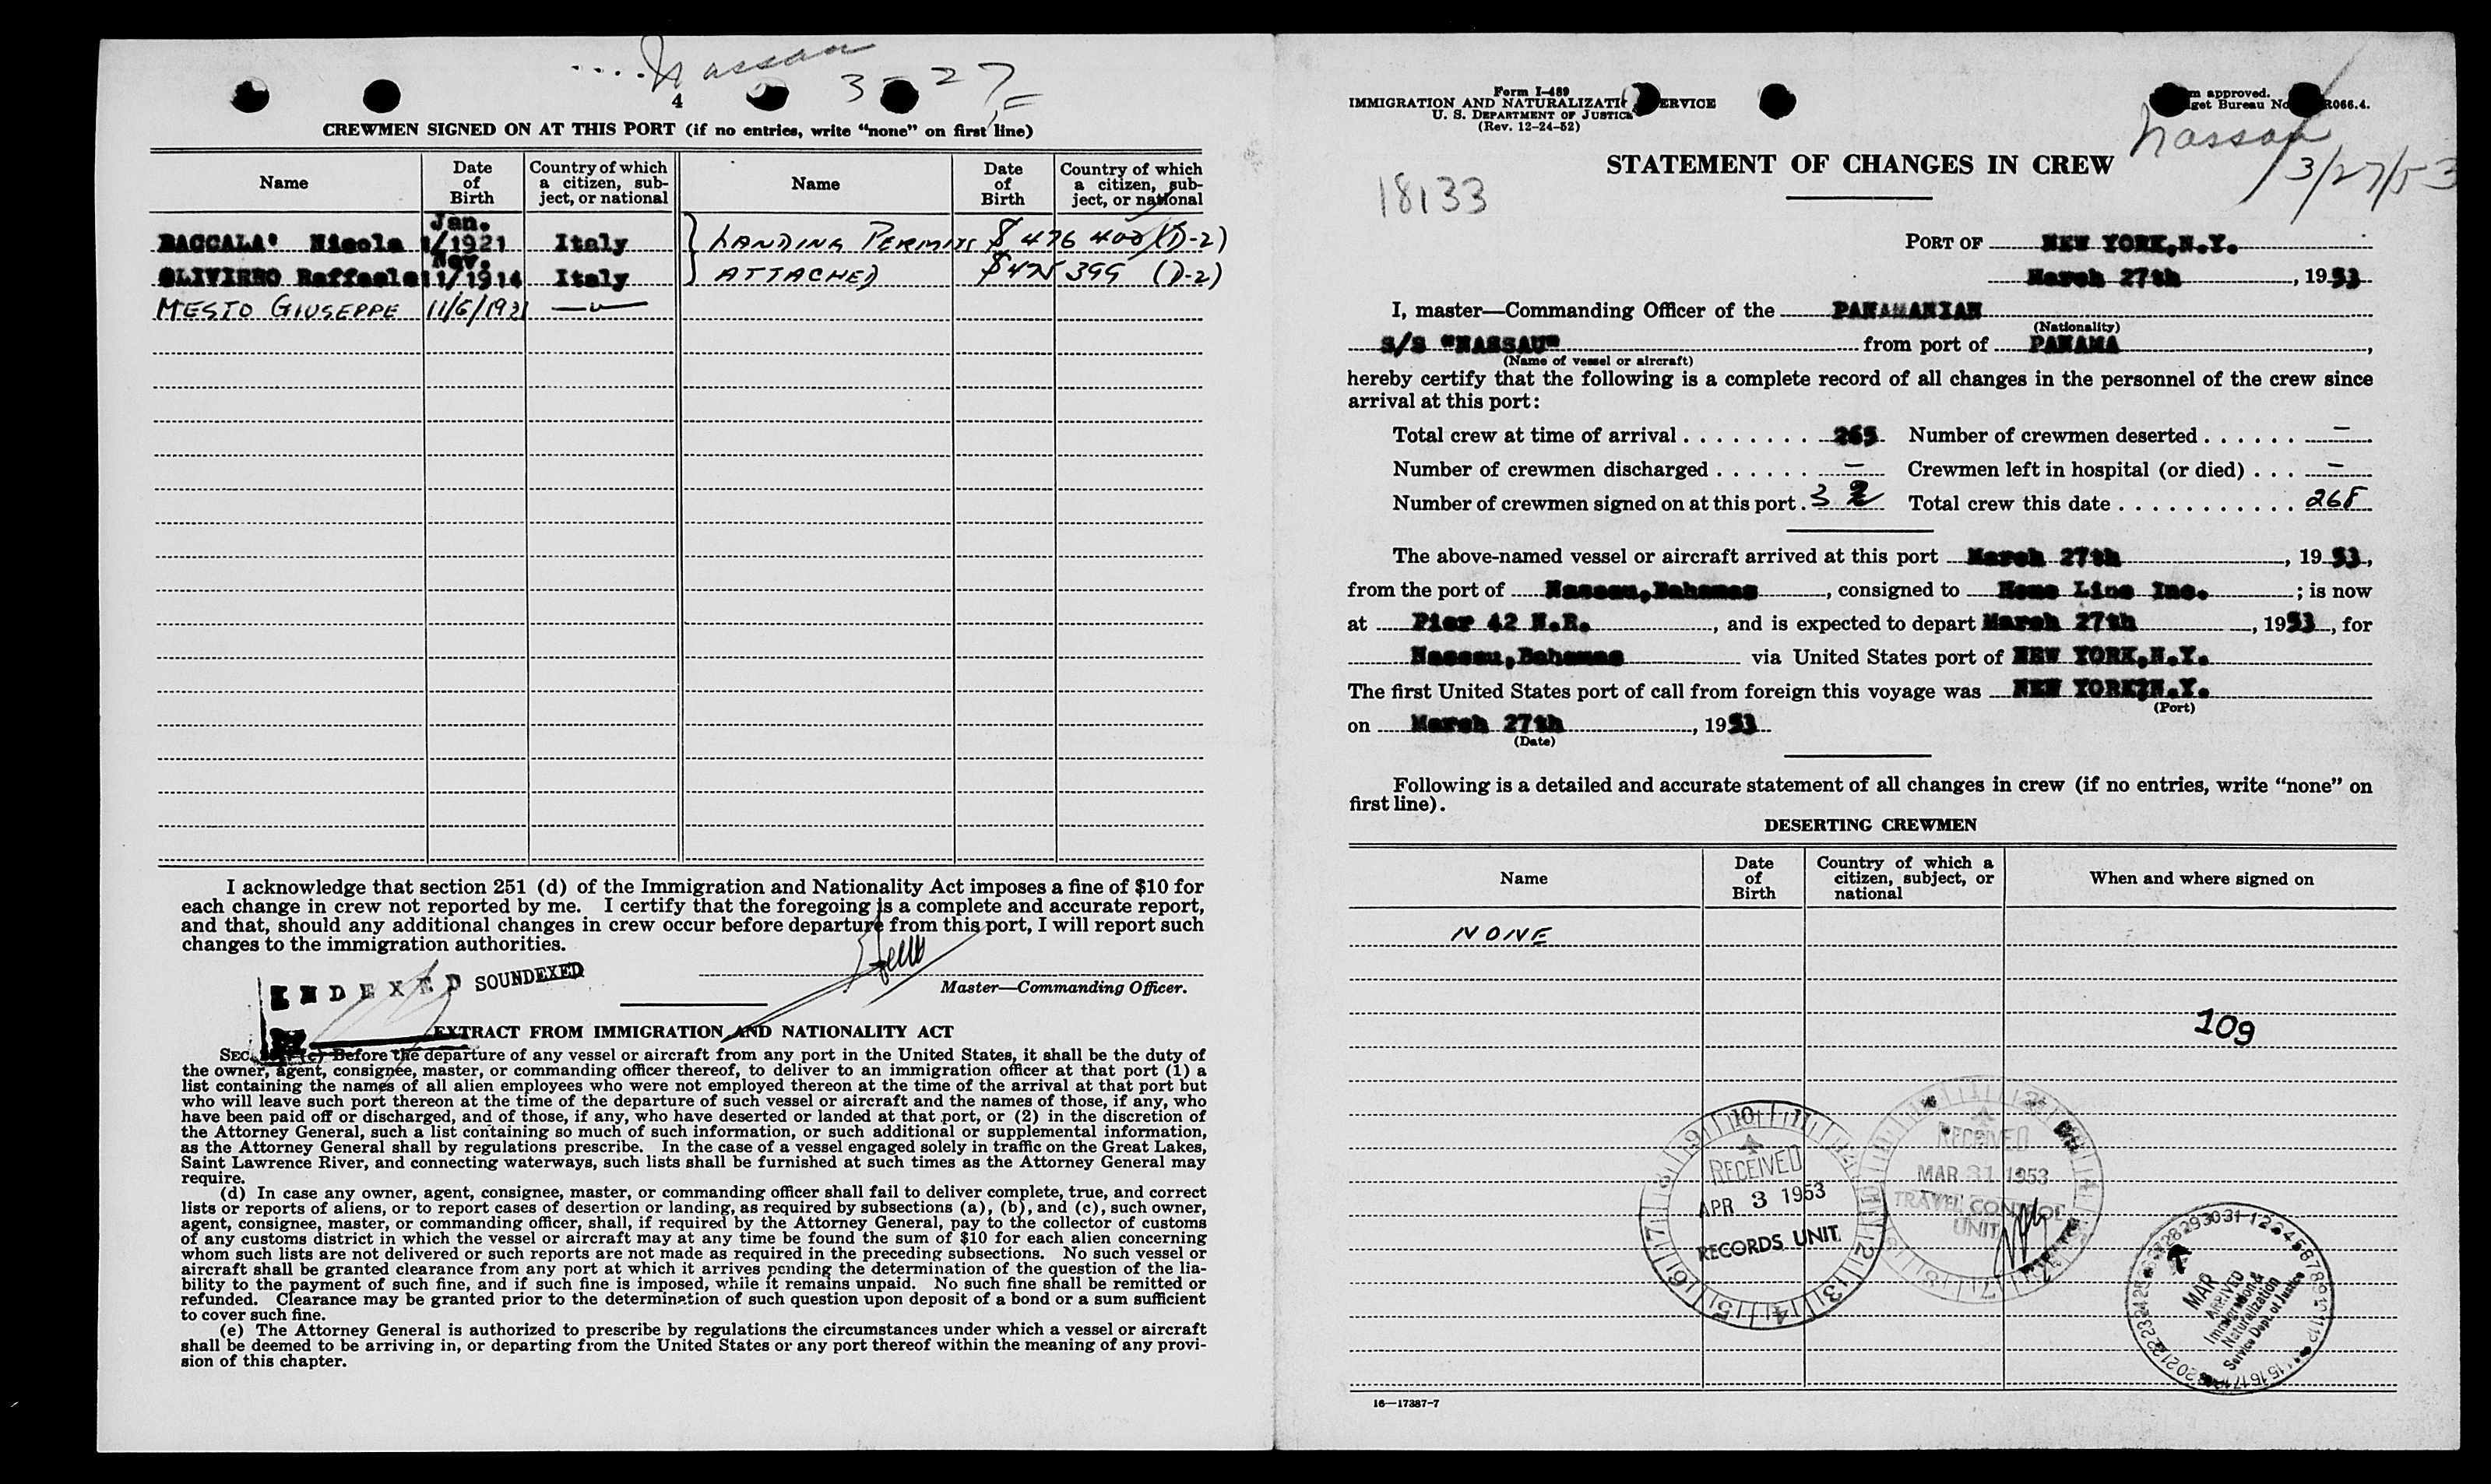 Nassau
3-27
4
CREWMEN SIGNED ON AT THIS PORT (if no entries, write "none" on first line)
Name | Date of Birth | Country of which a citizen, sub-ject, or national | Name | Date of Birth | Country of which a citizen, sub-ject, or national
BACCALA' Nicola Jan. 1/1921 Italy } LANDING PERMITS $ 476 400 (D-2)
OLIVIERO Raffaele Nov. 11/1914 Italy } ATTACHED $ 475 399 (D-2)
MESTO GIUSEPPE 11/6/1921 — " —
I acknowledge that section 251 (d) of the Immigration and Nationality Act imposes a fine of $10 for
each change in crew not reported by me. I certify that the foregoing is a complete and accurate report,
and that, should any additional changes in crew occur before departure from this port, I will report such
changes to the immigration authorities.
INDEXED SOUNDEXED
Master—Commanding Officer.
EXTRACT FROM IMMIGRATION AND NATIONALITY ACT
SEC. (c) Before the departure of any vessel or aircraft from any port in the United States, it shall be the duty of
the owner, agent, consignee, master, or commanding officer thereof, to deliver to an immigration officer at that port (1) a
list containing the names of all alien employees who were not employed thereon at the time of the arrival at that port but
who will leave such port thereon at the time of the departure of such vessel or aircraft and the names of those, if any, who
have been paid off or discharged, and of those, if any, who have deserted or landed at that port, or (2) in the discretion of
the Attorney General, such a list containing so much of such information, or such additional or supplemental information,
as the Attorney General shall by regulations prescribe. In the case of a vessel engaged solely in traffic on the Great Lakes,
Saint Lawrence River, and connecting waterways, such lists shall be furnished at such times as the Attorney General may
require.
(d) In case any owner, agent, consignee, master, or commanding officer shall fail to deliver complete, true, and correct
lists or reports of aliens, or to report cases of desertion or landing, as required by subsections (a), (b), and (c), such owner,
agent, consignee, master, or commanding officer, shall, if required by the Attorney General, pay to the collector of customs
of any customs district in which the vessel or aircraft may at any time be found the sum of $10 for each alien concerning
whom such lists are not delivered or such reports are not made as required in the preceding subsections. No such vessel or
aircraft shall be granted clearance from any port at which it arrives pending the determination of the question of the lia-
bility to the payment of such fine, and if such fine is imposed, while it remains unpaid. No such fine shall be remitted or
refunded. Clearance may be granted prior to the determination of such question upon deposit of a bond or a sum sufficient
to cover such fine.
(e) The Attorney General is authorized to prescribe by regulations the circumstances under which a vessel or aircraft
shall be deemed to be arriving in, or departing from the United States or any port thereof within the meaning of any provi-
sion of this chapter.
Form I-489
IMMIGRATION AND NATURALIZATI ERVICE
U. S. DEPARTMENT OF JUSTICE
(Rev. 12-24-52)
m approved.
get Bureau No R066.4.
Nassau
3/27/53
18133
STATEMENT OF CHANGES IN CREW
PORT OF NEW YORK,N.Y.
March 27th, 1953
I, master—Commanding Officer of the PANAMANIAN
(Nationality)
S/S "NASSAU" from port of PANAMA,
(Name of vessel or aircraft)
hereby certify that the following is a complete record of all changes in the personnel of the crew since
arrival at this port:
Total crew at time of arrival . . . . . . . . 265 Number of crewmen deserted . . . . . . —
Number of crewmen discharged . . . . . . — Crewmen left in hospital (or died) . . . —
Number of crewmen signed on at this port . 3 2 Total crew this date . . . . . . . . . . . 268
The above-named vessel or aircraft arrived at this port March 27th, 1953,
from the port of Nassau,Bahamas, consigned to Home Line Inc. ; is now
at Pier 42 N.R., and is expected to depart March 27th, 1953, for
Nassau,Bahamas via United States port of NEW YORK,N.Y.
The first United States port of call from foreign this voyage was NEW YORK,N.Y.
(Port)
on March 27th, 1953
(Date)
Following is a detailed and accurate statement of all changes in crew (if no entries, write "none" on
first line).
DESERTING CREWMEN
Name | Date of Birth | Country of which a citizen, subject, or national | When and where signed on
NONE
109
RECEIVED
APR 3 1953
RECORDS UNIT.
RECEIVED
MAR 31 1953
TRAVEL CONTROL
UNIT
MAR
ARRIVED
Immigration &
Naturalization
Service Dept. of Justice
16—17387-7